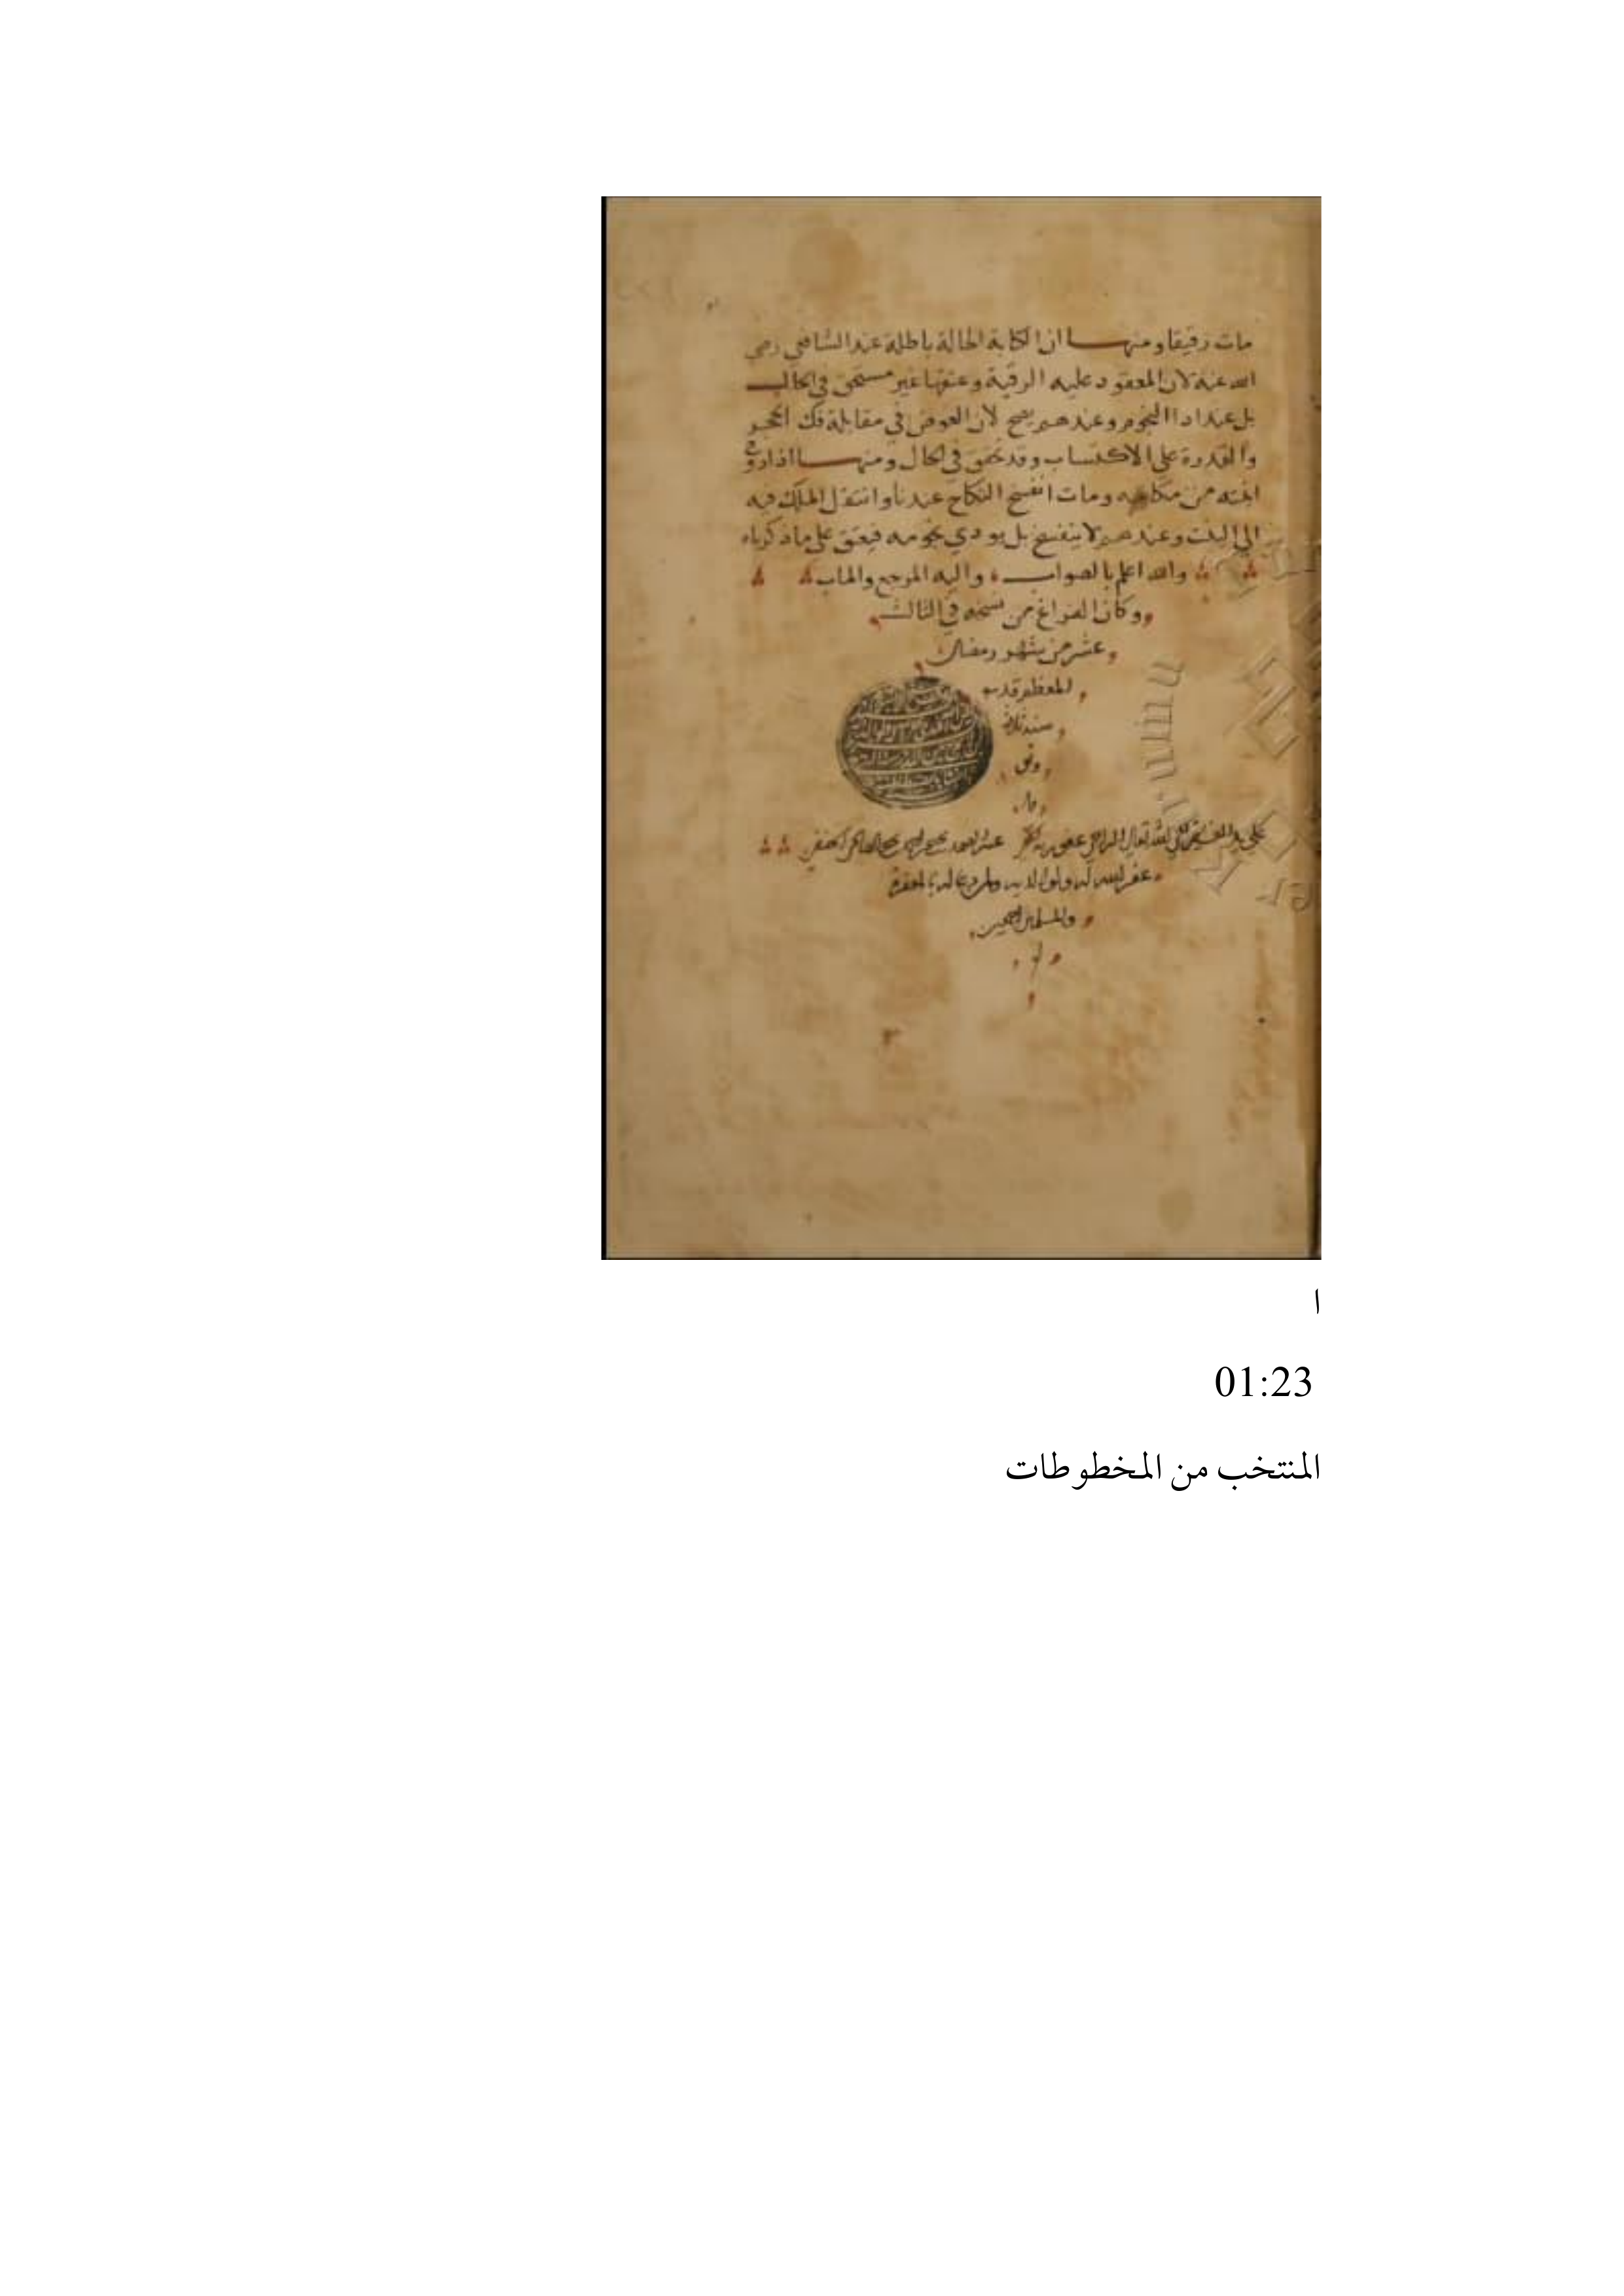 مات رقيقا ومنها ان الكتابة الحالة باطلة عند الشافعي رضي
الله عنه لان المعقود عليه الرقبة وعتقها غير مستحق في الحال
بل عند ادا النجوم وعندهم يصح لان العوض في مقابلة فك الحجر
والقدرة علي الاكتساب وقد تحقق في الحال ومنها اذا زوج
ابنته من مكاتبه ومات انفسخ النكاح عندنا وانتقل الملك فيه
الي البنت وعندهم لا ينفسخ بل يودي نجومه فيعتق علي ما ذكرناه
والله اعلم بالصواب واليه المرجع والماب
وكان الفراغ من نسخه في الثالث
عشر من شهر رمضان
المعظم قدره
سنة ثلاث
علي يد الفقير الي الله تعالي الراجي عفو ربه
غفر الله له ولوالديه ولمن دعا له بالمغفرة
والمسلمين اجمعين
ا
01:23
المنتخب من المخطوطات